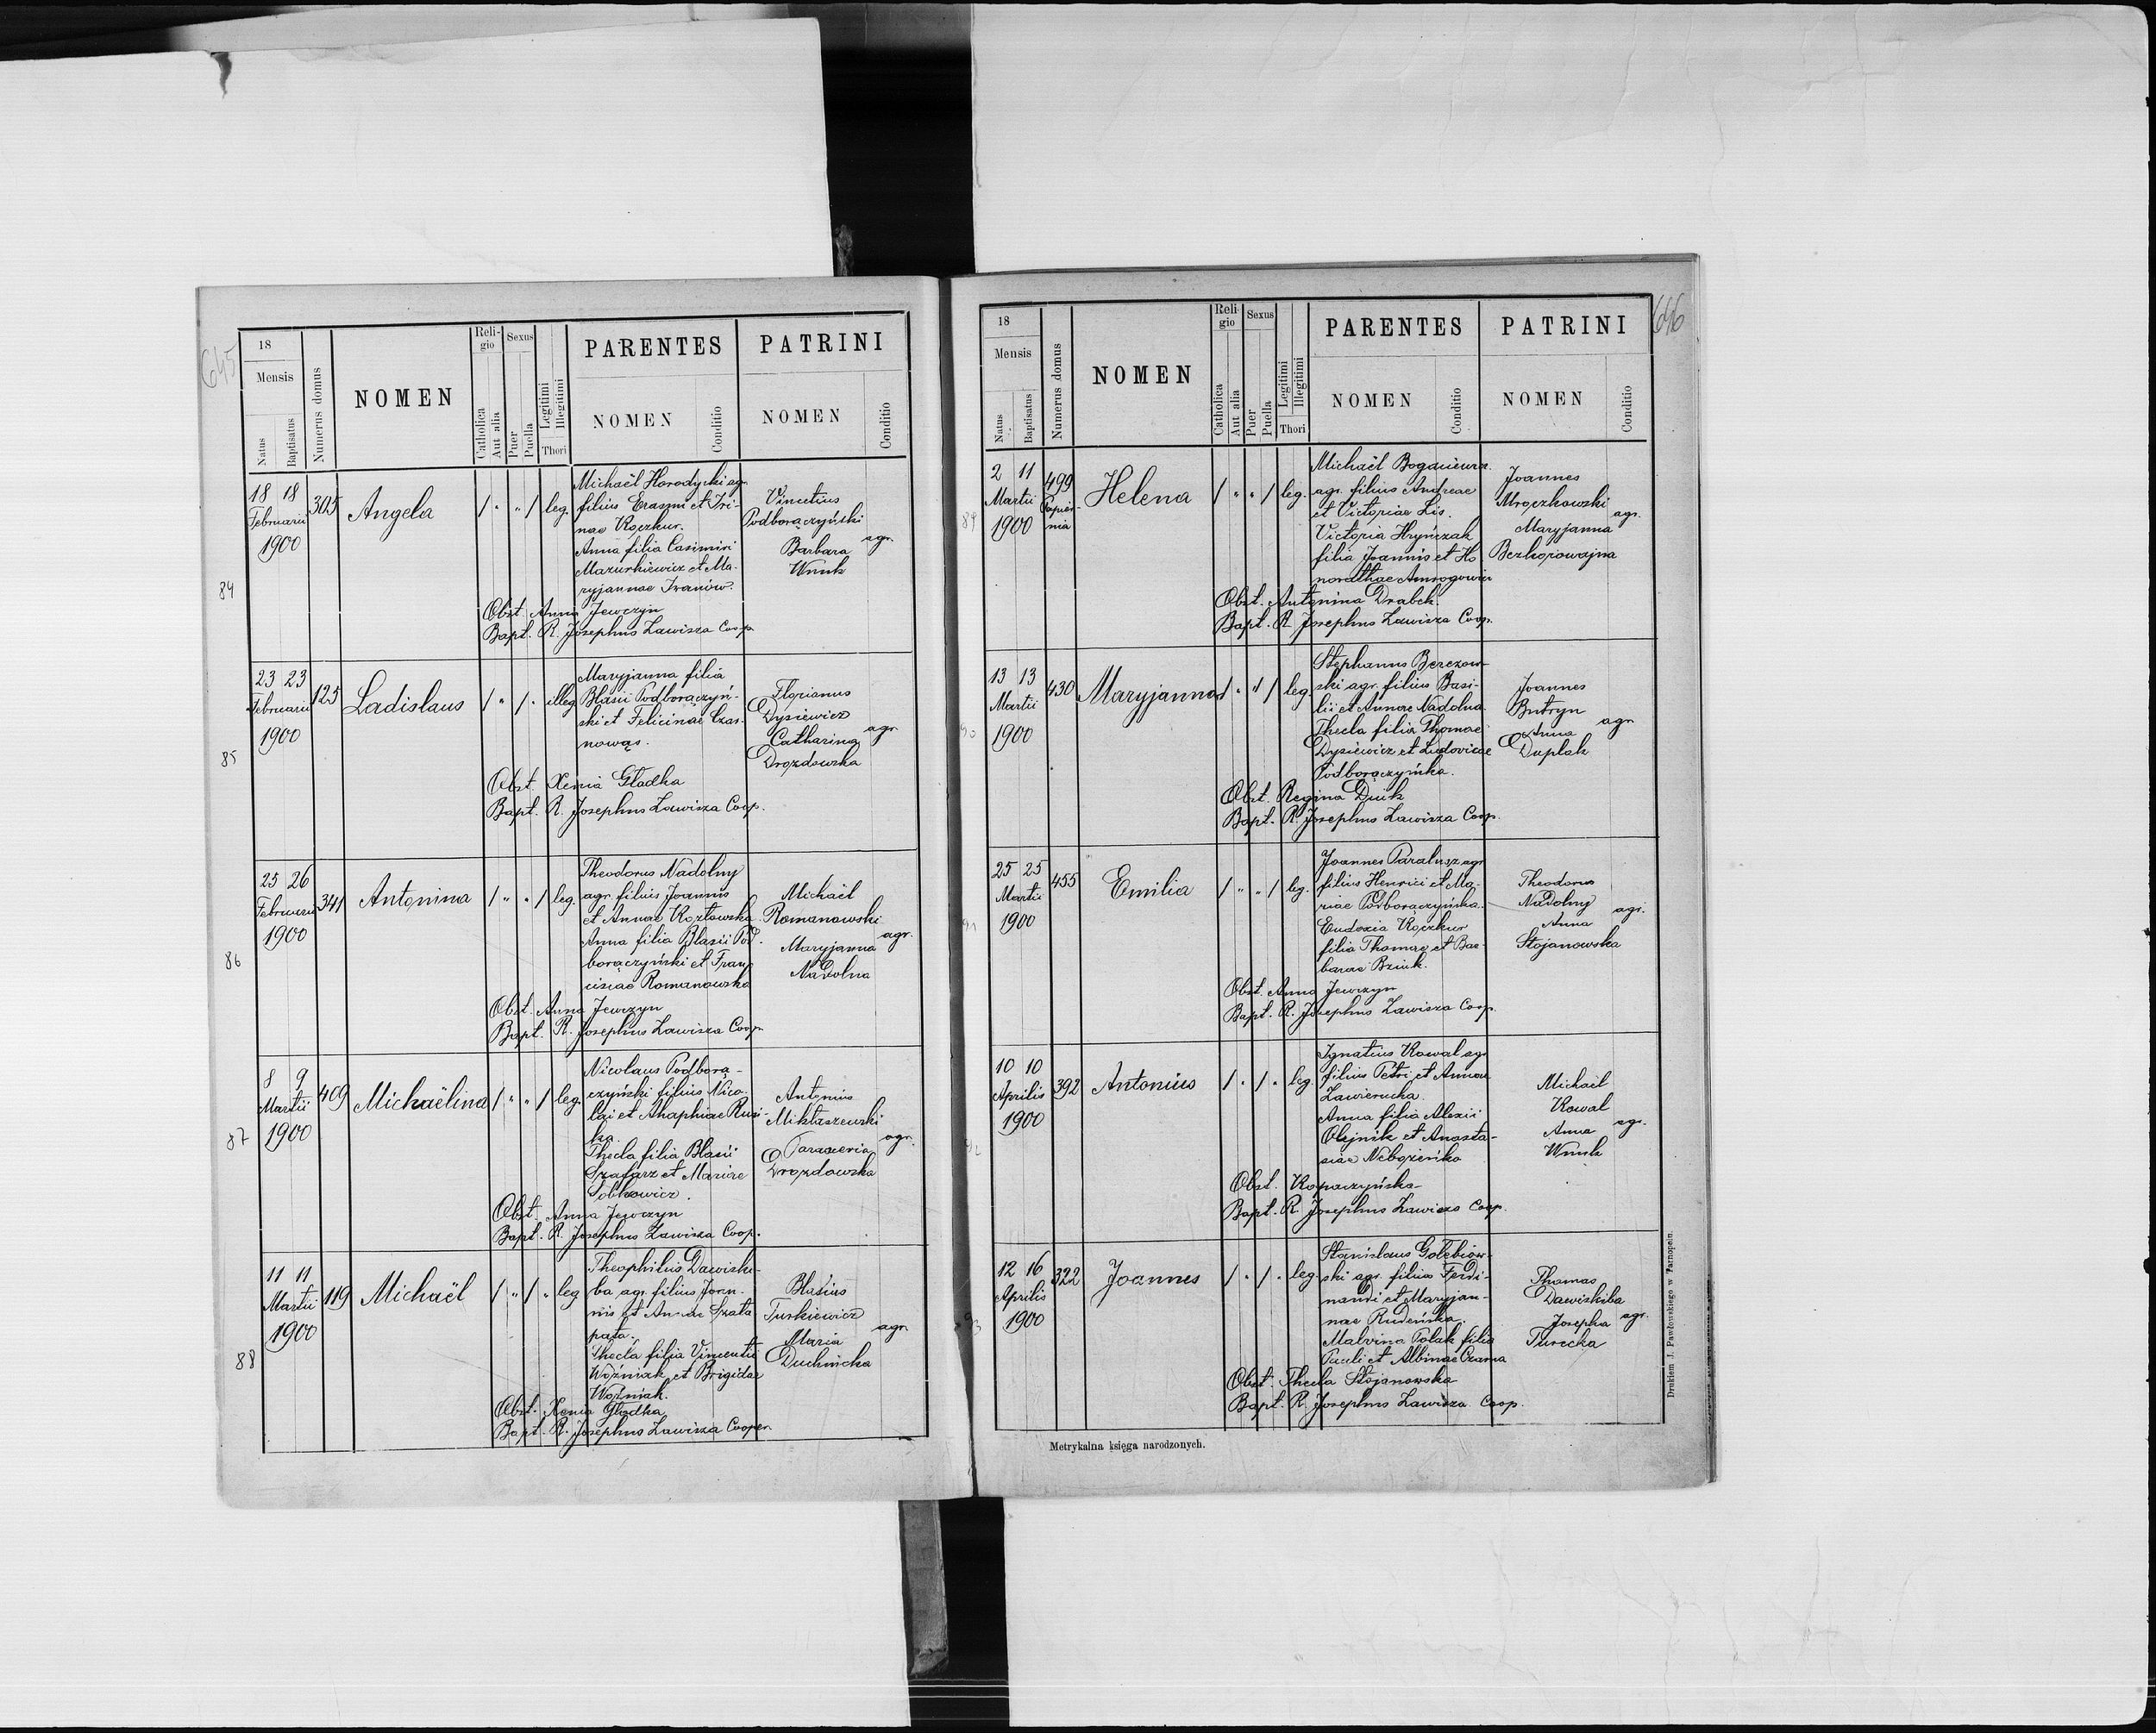 645
18
Mensis
Natus
Baptisatus
Numerus domus
NOMEN
Religio
Catholica
Aut alia
Sexus
Puer
Puella
Legitimi
Illegitimi
Thori
PARENTES
NOMEN
Conditio
PATRINI
NOMEN
Conditio
84
18 18
Februarii
1900
305
Angela
/ " " / leg.
Michaël Horodycki agr.
filius Erasmi et Iri-
nae Koczkur.
Anna filia Casimiri
Mazurkiewicz et Ma-
ryjannae Iwanów.
Vincetius
Podborączyński
Barbara
Wnuk
agr.
Obst. Anna Jewczyn
Bapt. R. Josephus Zawisza Coop.
85
23 23
Februarii
1900
125
Ladislaus
/ " / " illeg
Maryjanna filia
Blasii Podborączyń-
ski et Felicinae
Florianus
Dysiewicz
Catharina
Drozdowska
agr.
Obst. Xenia Gładka
Bapt. R. Josephus Zawisza Coop.
86
25 26
Februarii
1900
341
Antonina
/ " " / leg.
Theodorus Nadolny
agr. filius Joannis
et Annae Kozłowska
Anna filia Blasii Pod-
borączyński et Fran-
cisiae Romanowska
Michaël
Romanowski
Maryjanna
Nadolna
agr.
Obst. Anna Jewczyn
Bapt. R. Josephus Zawisza Coop.
87
8 9
Martii
1900
409
Michaëlina
/ " " / leg.
Nicolaus Podborą-
czyński filius Nico-
lai et Ahaphiae Rusi-
ka.
Thecla filia Blasii
Szafarz et Mariae
Sobkowicz.
Antonius
Mikłaszewski
Paraxeria
Drozdowska
agr.
Obst. Anna Jewczyn
Bapt. R. Josephus Zawisza Coop.
88
11 11
Martii
1900
119
Michaël
/ " / " leg
Theophilus Dawiski-
ba agr. filius Joan-
nis et Annae Szata
pata.
Thecla filia Vincentii
Woźniak et Brigidae
Woźniak.
Blasius
Turkiewicz
Maria
Duchnicka
agr.
Obst. Xenia Gładka
Bapt. R. Josephus Zawisza Cooper.
646
18
Mensis
Natus
Baptisatus
Numerus domus
NOMEN
Religio
Catholica
Aut alia
Sexus
Puer
Puella
Legitimi
Illegitimi
Thori
PARENTES
NOMEN
Conditio
PATRINI
NOMEN
Conditio
89
2 11
Martii
1900
499
Papier-
nia
Helena
/ " " / leg.
Michaël
agr. filius Andreae
et Victoriae Lis.
Victoria Hryńczak
filia Joannis et Ho
norathae
Joannes
Mroczkowski
Maryjanna
Bezkorowajna
agr.
Obst. Antonina Drabek.
Bapt. R. Josephus Zawisza Coop.
90
13 13
Martii
1900
430
Maryjanna
/ " " / leg.
Stephanus Berezow-
ski agr. filius Basi-
lii et Annae Nadolna.
Thecla filia Thomae
Dysiewicz et Ludovicae
Podborączyńka.
Joannes
Butryn
Anna
Duplak
agr.
Obst. Regina Duik
Bapt. R. Josephus Zawisza Coop.
91
25 25
Martii
1900
455
Emilia
/ " " / leg.
Joannes Paralusz agr
filius Henrici et Ma-
riae Podborączyńka.
Eudoxia Koczkur
filia Thomae et Bar-
barae
Theodorus
Nadolny
Anna
Stojanowska
agr.
Obst. Anna Jewczyn
Bapt. R. Josephus Zawisza Coop.
92
10 10
Aprilis
1900
392
Antonius
/ " / " leg.
Ignatius Kowal agr
filius Petri et Annae
Zawierucha.
Anna filia Alexii
Olejnik et Anasta-
siae Nebożeńko
Michaël
Kowal
Anna
Wnuk
agr.
Obst. Kopaczyńska
Bapt. R. Josephus Zawisza Coop.
93
12 16
Aprilis
1900
322
Joannes
/ " / " leg.
Stanislaus Gołębiow-
ski agr. filius Ferdi-
nandi et Maryjan-
nae Rudeńska.
Malvina Polak filia
Pauli et Albinae Czarna
Thomas
Dawiskiba
Josepha
Turecka
agr.
Obst. Thecla Stojanowska
Bapt. R. Josephus Zawisza Coop.
Metrykalna księga narodzonych.
Drukiem J. Pawłowskiego w Tarnopolu.